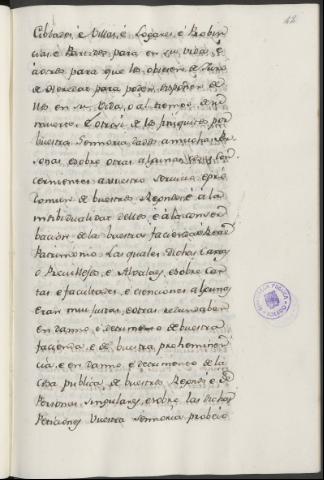 42
Cibdades, é Villas, é Logares, é Probin
cias é Partidos para en su vida, é
á otros para que los obiesen de Juro
de eredad para poder disponer de
llos en su vida, o al tiempo de su
muerte. E otrosi de los finiquitos por
buestra Sennoria dados a muchas Per
sonas, e sobre otras algunas cosas con
cernientes a vuestro servicio, é pró
comun de buestros Regnos, é á la
indibidualidat dellos, é á la conser
bacion de la buestra facienda é Real
Patrimonio. Las quales dichas Cartas
é Previllejos, é Albalaes, é sobre Car
tas é facultades, é esenciones algunas
eran muy justas, é otras redundaban
en danno, é decrimento de buestra
facienda, é de buestra prheminen
cia, é en danno, é decrimento de la
Cosa publica, de buestros Regnos, é de
Personas singulares, é sobre las dichas
Peticiones Vuestra Sennoria probeió